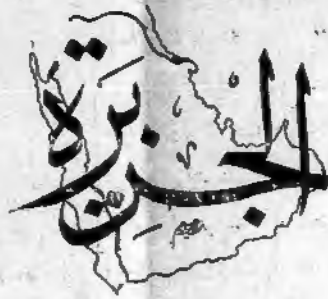 الجزيرة